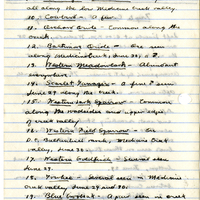 all along the Medicine Creek valley.
10. Cowbird - A few.
11. Orchard Oriole - Common along the
creek.
12. Baltimore Oriole - One seen
along Medicine Creek, June 29.
13. Western Meadowlark - Abundant
everywhere.
14. Scarlet Tanager - A few seen
June 29 along the Creek.
15. Western Lark Sparrow - Common
along the roadsides and
creek.
16. Western Field Sparrow - One
valley, June 30.
17. Western Goldfinch - Several seen
June 29.
18. Towhee - Several seen in Medicine
Creek valley, June 29 and 30.
19. Blue Grosbeak - A pair seen in creek